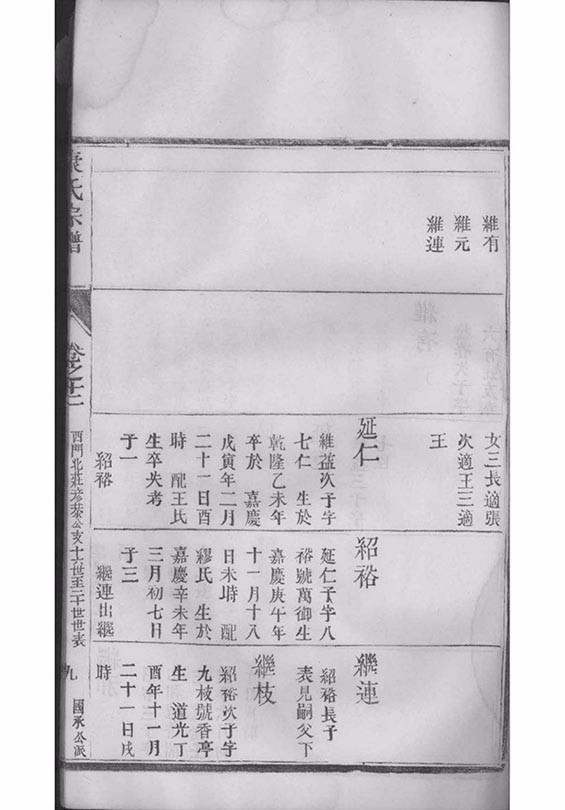 維有
維元
維連
女三長適張
次適王三適
王
延仁
維益次子字
七仁 生於
乾隆乙未年
卒於 嘉慶
戊寅年二月
二十一日酉
時 配王氏
生卒失考
子一
紹裕
紹裕
延仁子字八
裕號萬御生
嘉慶庚午年
十一月十八
日未時 配
繆氏 生於
嘉慶辛未年
三月初七日
子三
繼連出繼
繼連
紹裕長子
表見嗣父下
繼枝
紹裕次子字
九枝號香亭
生 道光丁
酉年十一月
二十一日戌
時
氏宗譜
卷之
西門北莊 公支十一世至二十世世表
九
國承公派